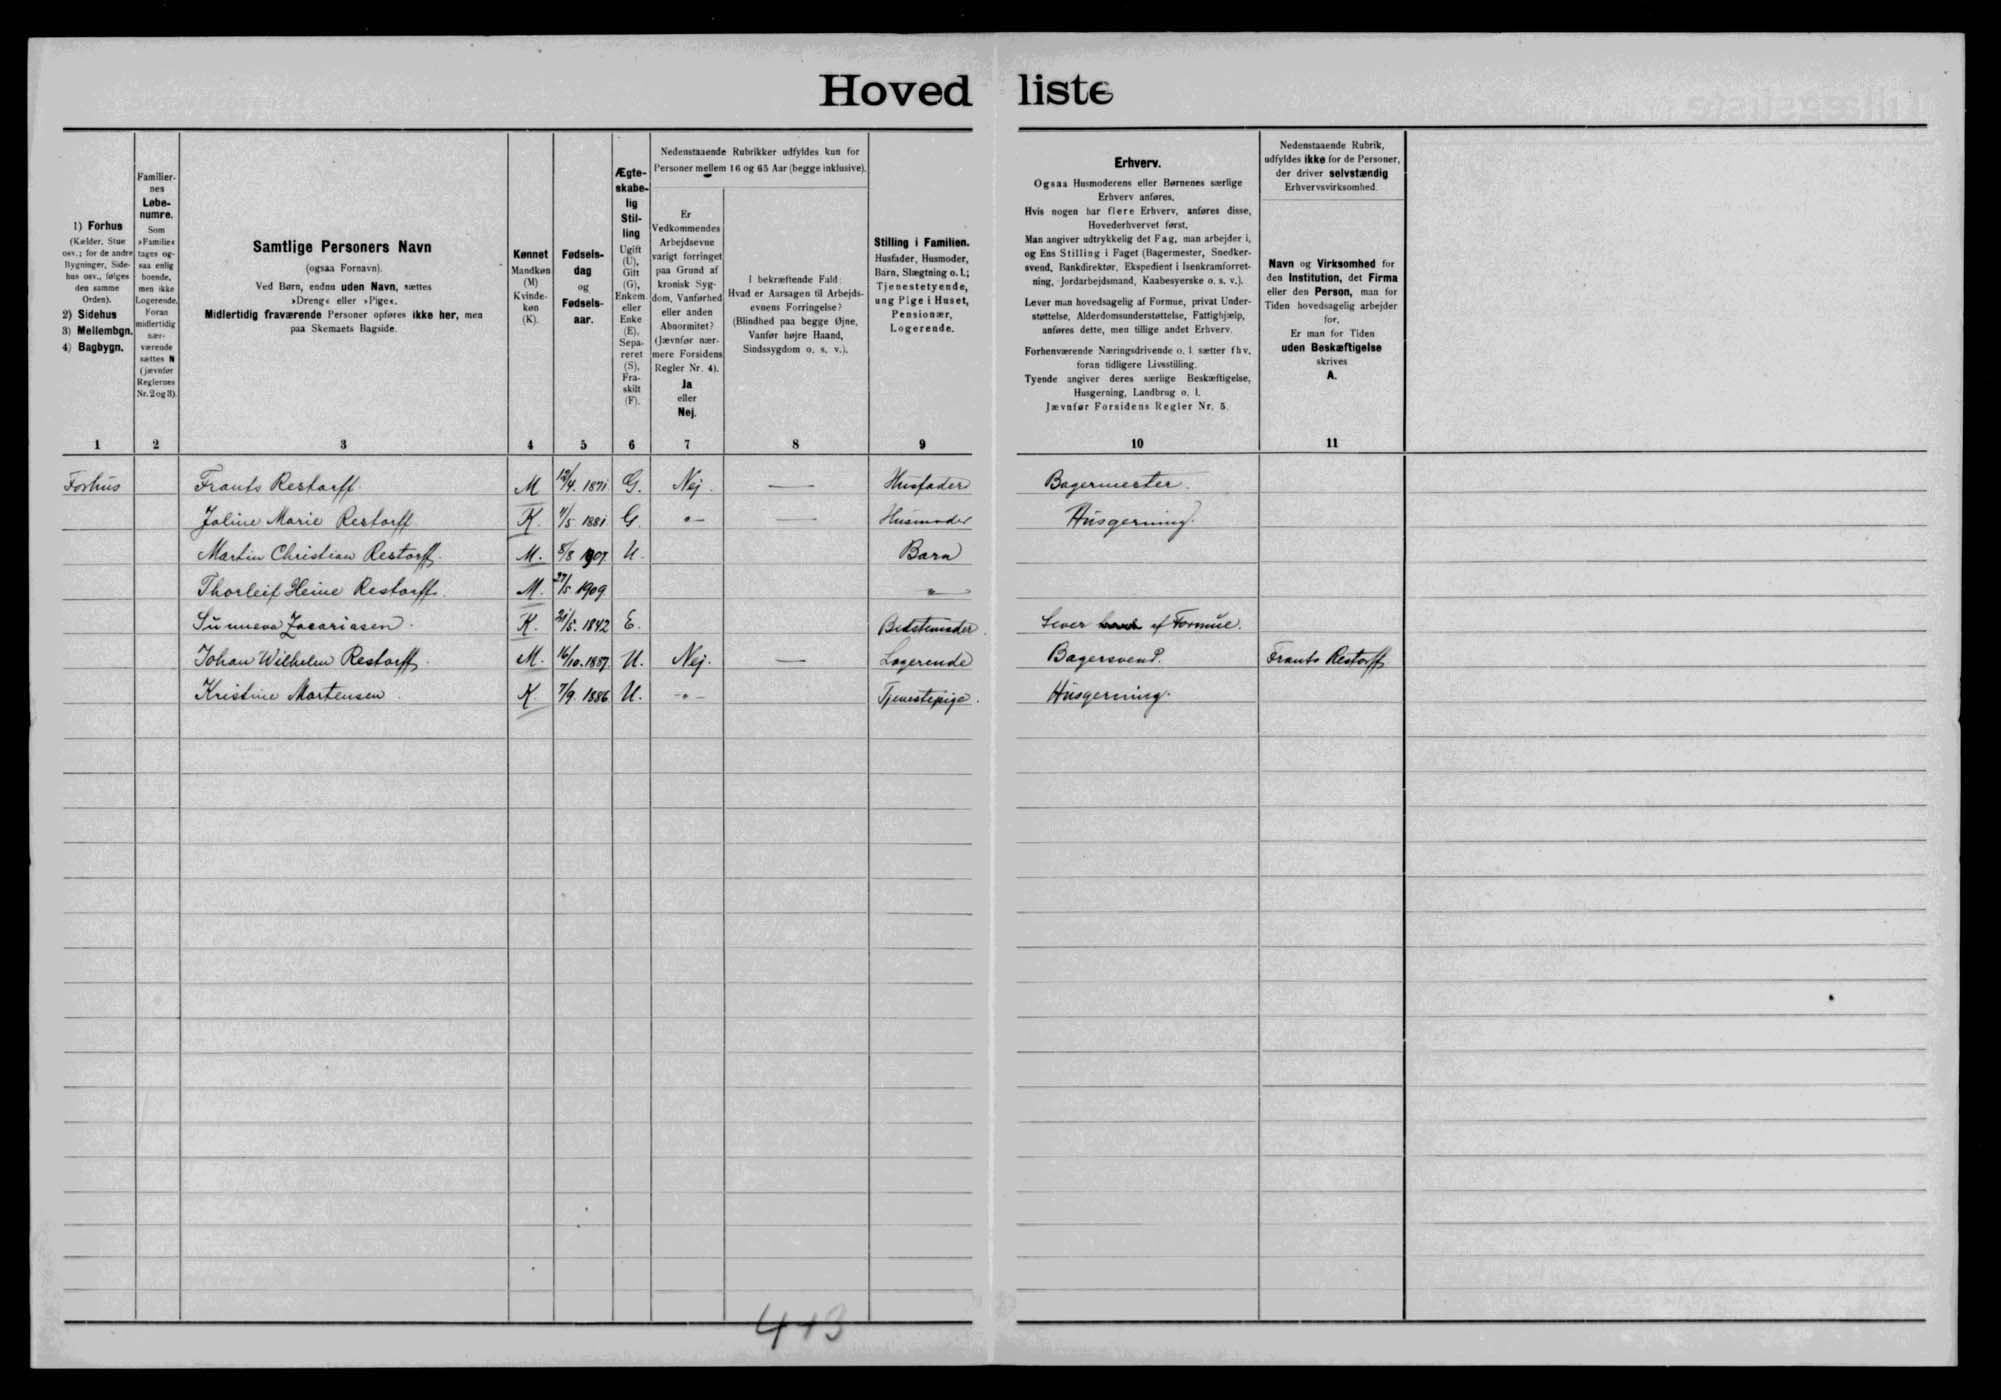 Hovedliste
1) Forhus
(Kælder, Stue
osv.; for de andre
Bygninger, Side-
hus osv., følges
den samme
Orden).
2) Sidehus
3) Mellembgn.
4) Bagbygn.
Familier-
nes
Løbe-
numre.
Som
»Familie«
tages og-
saa enlig
boende,
men ikke
Logerende.
Foran
midlertidig
nær-
værende
sættes N
(jævnfør
Reglernes
Nr. 2 og 3).
Samtlige Personers Navn
(ogsaa Fornavn).
Ved Børn, endnu uden Navn, sættes
»Dreng« eller »Pige«.
Midlertidig fraværende Personer opføres ikke her, men
paa Skemaets Bagside.
Kønnet
Mandkøn
(M)
Kvinde-
køn
(K).
Fødsels-
dag
og
Fødsels-
aar.
Ægte-
skabe-
lig
Stil-
ling
Ugift
(U),
Gift
(G),
Enkem.
eller
Enke
(E),
Sepa-
reret
(S),
Fra-
skilt
(F).
Nedenstaaende Rubrikker udfyldes kun for
Personer mellem 16 og 65 Aar (begge inklusive).
Er
Vedkommendes
Arbejdsevne
varigt forringet
paa Grund af
kronisk Syg-
dom, Vanførhed
eller anden
Abnormitet?
(Jævnfør nær-
mere Forsidens
Regler Nr. 4).
Ja
eller
Nej.
I bekræftende Fald:
Hvad er Aarsagen til Arbejds-
evnens Forringelse?
(Blindhed paa begge Øjne,
Vanfør højre Haand,
Sindssygdom o. s. v.).
Stilling i Familien.
Husfader, Husmoder,
Barn, Slægtning o. l.;
Tjenestetyende,
ung Pige i Huset,
Pensionær,
Logerende.
Erhverv.
Ogsaa Husmoderens eller Børnenes særlige
Erhverv anføres.
Hvis nogen har flere Erhverv, anføres disse,
Hovederhvervet først.
Man angiver udtrykkelig det Fag, man arbejder i,
og Ens Stilling i Faget (Bagermester, Snedker-
svend, Bankdirektør, Ekspedient i Isenkramforret-
ning, Jordarbejdsmand, Kaabesyerske o. s. v.).
Lever man hovedsagelig af Formue, privat Under-
støttelse, Alderdomsunderstøttelse, Fattighjælp,
anføres dette, men tillige andet Erhverv.
Forhenværende Næringsdrivende o. l. sætter fhv.
foran tidligere Livsstilling.
Tyende angiver deres særlige Beskæftigelse,
Husgerning, Landbrug o. l.
Jævnfør Forsidens Regler Nr. 5.
Nedenstaaende Rubrik,
udfyldes ikke for de Personer,
der driver selvstændig
Erhvervsvirksomhed.
Navn og Virksomhed for
den Institution, det Firma
eller den Person, man for
Tiden hovedsagelig arbejder
for.
Er man for Tiden
uden Beskæftigelse
skrives
A.
1 2 3 4 5 6 7 8 9 10 11
Forhus Frants Restorff. M 12/4. 1871. G. Nej. — Husfader Bagermester.
Joline Marie Restorff K. 7/5 1881 G. -"- — Husmoder Husgerning.
Martin Christian Restorff. M. 8/8 1907. U. Barn
Thorleif Heine Restorff. M. 27/5 1909 "
Sunneva Zacariasen. K. 21/5. 1842 E. Bedstemoder. Lever af Formue.
Johan Wilhelm Restorff. M. 16/10. 1887. U. Nej. — Logerende Bagersvend. Frants Restorff
Kristine Mortensen. K 7/9. 1886 U. -"- Tjenestepige. Husgerning.
413